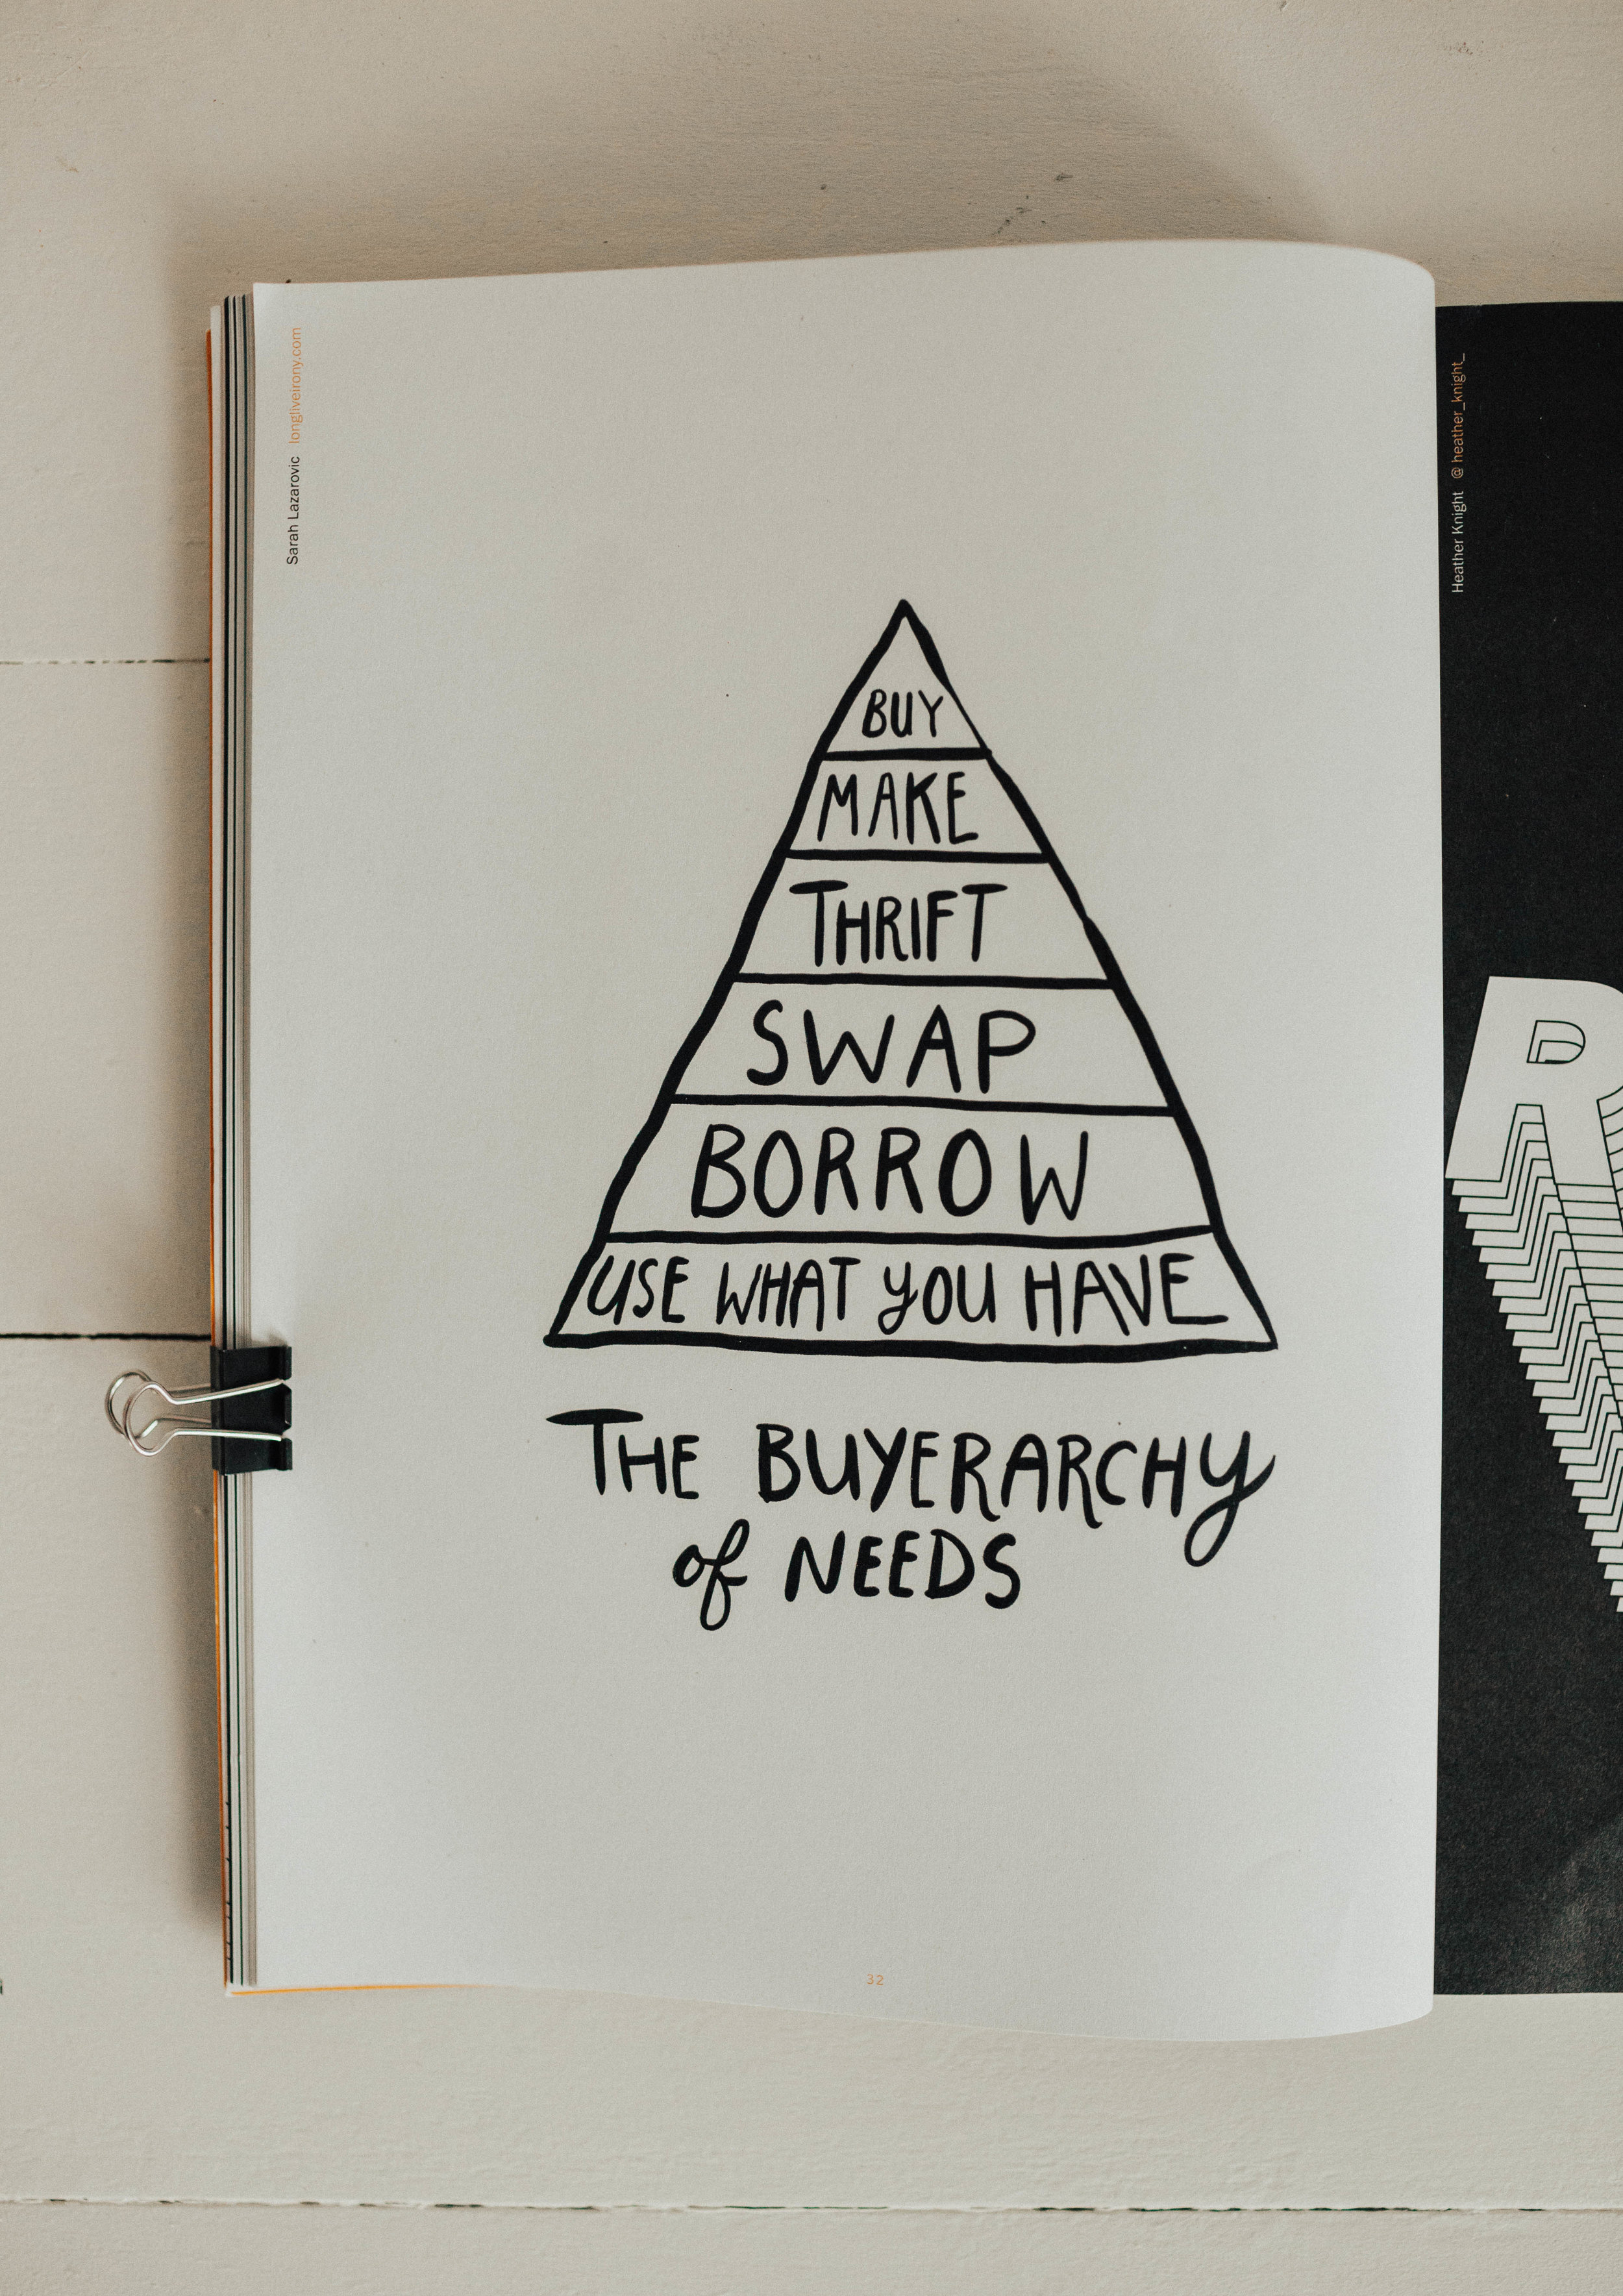 Sarah Lazarovic longliveirony.com
BUY
MAKE
THRIFT
SWAP
BORROW
USE WHAT YOU HAVE
THE BUYERARCHY
of NEEDS
32
Heather Knight @heather_knight_
R